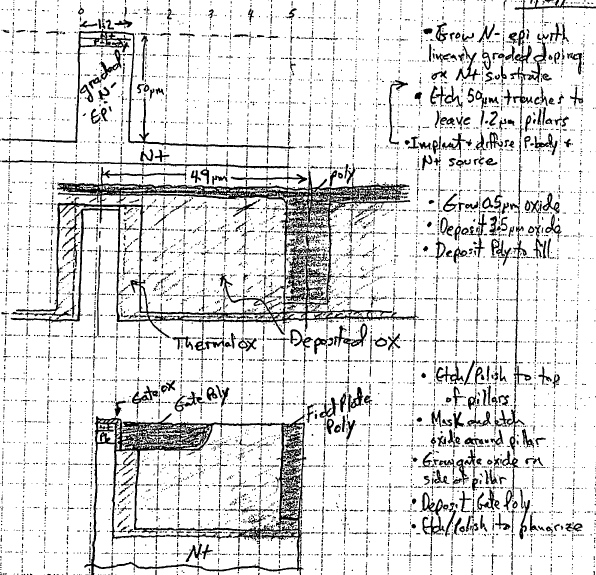 0 1 2 3 4 5
1.2
N+
P-body
graded
N-
Epi
50μm
N+
• Grow N- epi with
linearly graded doping
on N+ substrate
• Etch 50μm trenches to
leave 1.2μm pillars
• Implant + diffuse P-body +
N+ source
4.9μm
poly
• Grow 0.5μm oxide
• Deposit 3.5μm oxide
• Deposit Poly to fill
Thermal ox
Deposited ox
Gate ox
Gate Poly
Field Plate
Poly
N+
• Etch/Polish to top
of pillars
• Mask and etch
oxide around pillar
• Grow gate oxide on
side of pillar
• Deposit Gate Poly
• Etch/Polish to planarize